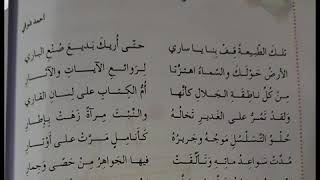 احمد شوقي
تِلكَ الطَّبيعَةُ قِفْ بِنا يا ساري حَتّى أُريكَ بَديعَ صُنْعِ الباري
الأَرضُ حَوْلَكَ والسَّماءُ اهتزَّتا لِرَوائعِ الآياتِ والآثارِ
مِنْ كُلِّ ناطِقَةِ الجَلالِ كأنَّها أُمُّ الكِتابِ على لِسانِ القاري
ولَقد تَمُرُّ على الغَديرِ تَخالُهُ والنَّبْتَ مِرآةً زَهَتْ بإطارِ
حُلْوُ التَّسَلْسُلِ مَوجُهُ وخَريرُهُ كأنامِلٍ مَرَّتْ على أوتارِ
مُدَّتْ سَواعِدُ مائِهِ وتَألَّقَتْ فيها الجَواهِرُ مِنْ حَصًى وجِمارِ